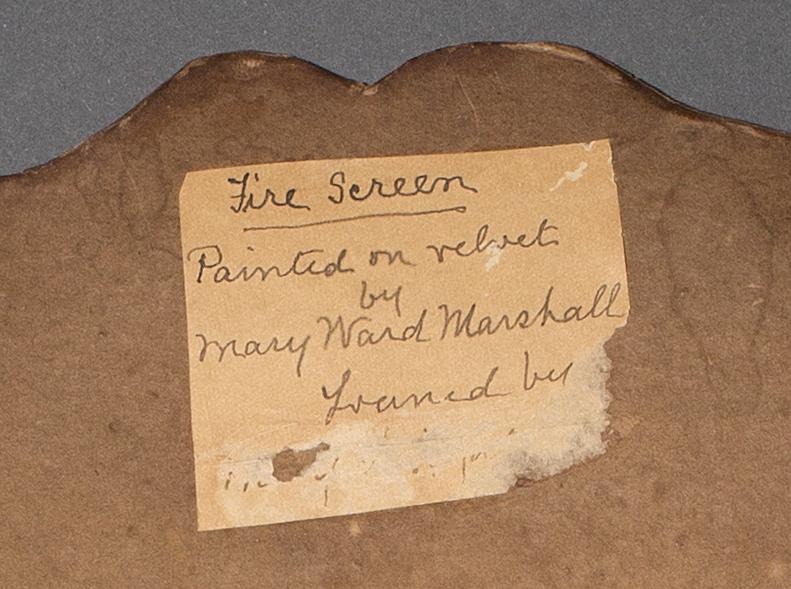 Fire Screen
Painted on velvet
by
Mary Ward Marshall
Loaned by